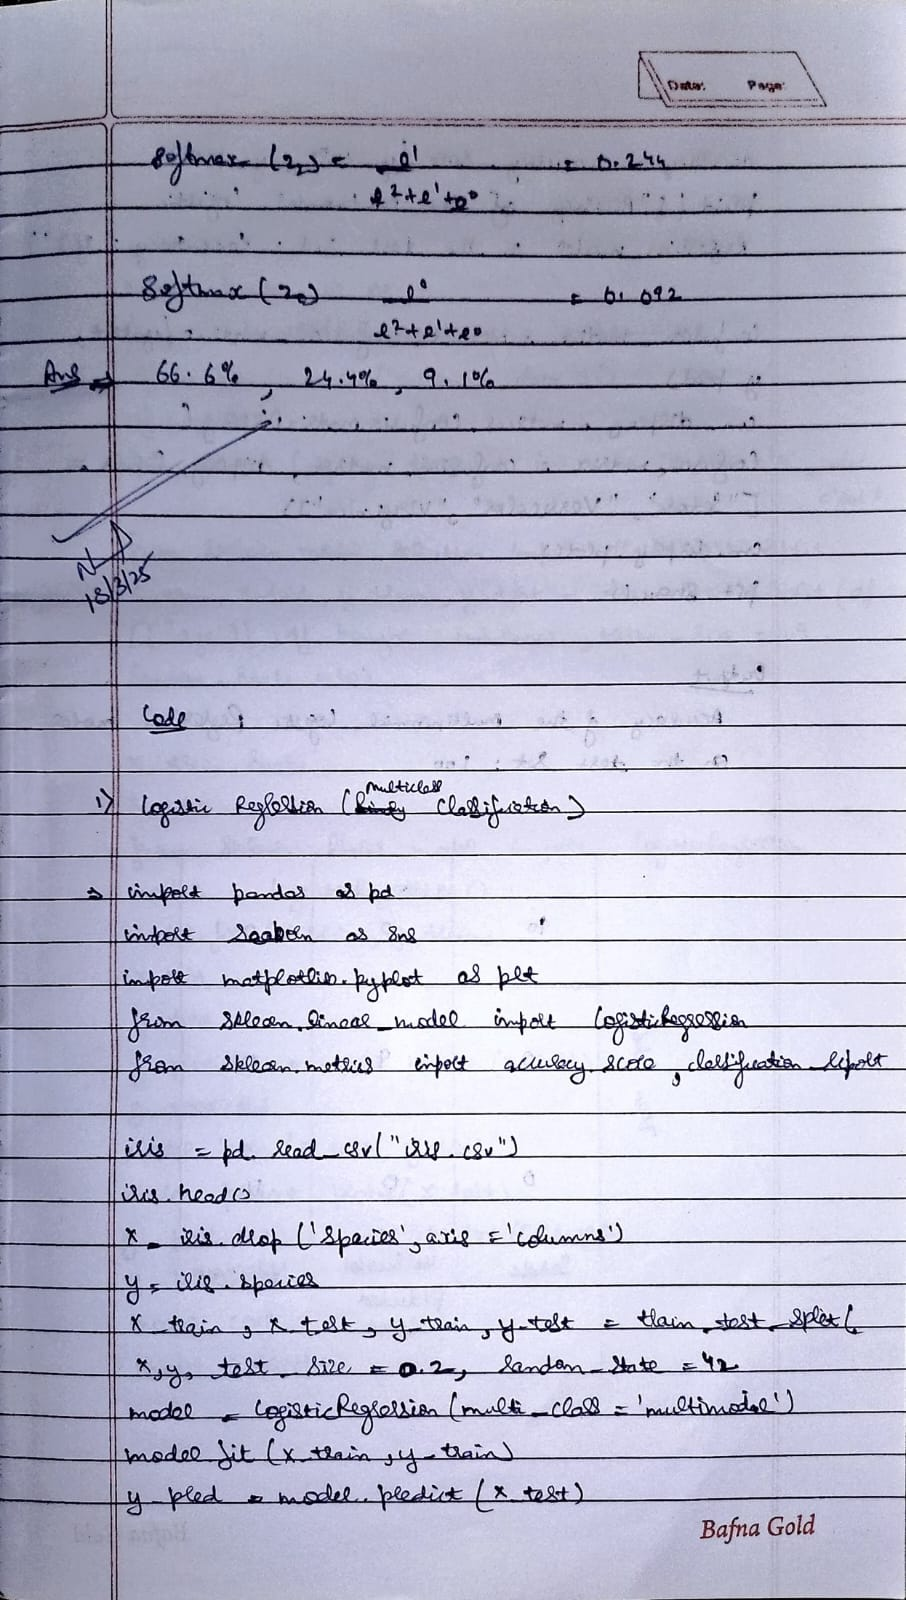 Date: Page:
Softmax (z₂) = e¹ = 0.244
e² + e¹ + e⁰
Softmax (z₃) e⁰ = 0.092
e² + e¹ + e⁰
Ans ⇒ 66.6%, 24.4%, 9.1%
18/3/25
Code :
multiclass
1) Logistic Regression (Binary Classification)
⇒ import pandas as pd
import seaborn as sns
import matplotlib.pyplot as plt
from sklearn.linear_model import LogisticRegression
from sklearn.metrics import accuracy_score, classification_report
iris = pd.read_csv("iris.csv")
iris.head()
x = iris.drop('species', axis='columns')
y = iris.species
x_train, x_test, y_train, y_test = train_test_split(
x, y, test_size = 0.2, random_state = 42
model = LogisticRegression(multi_class = 'multimodal')
model fit (x_train, y_train)
y_pred = model.predict(x_test)
Bafna Gold